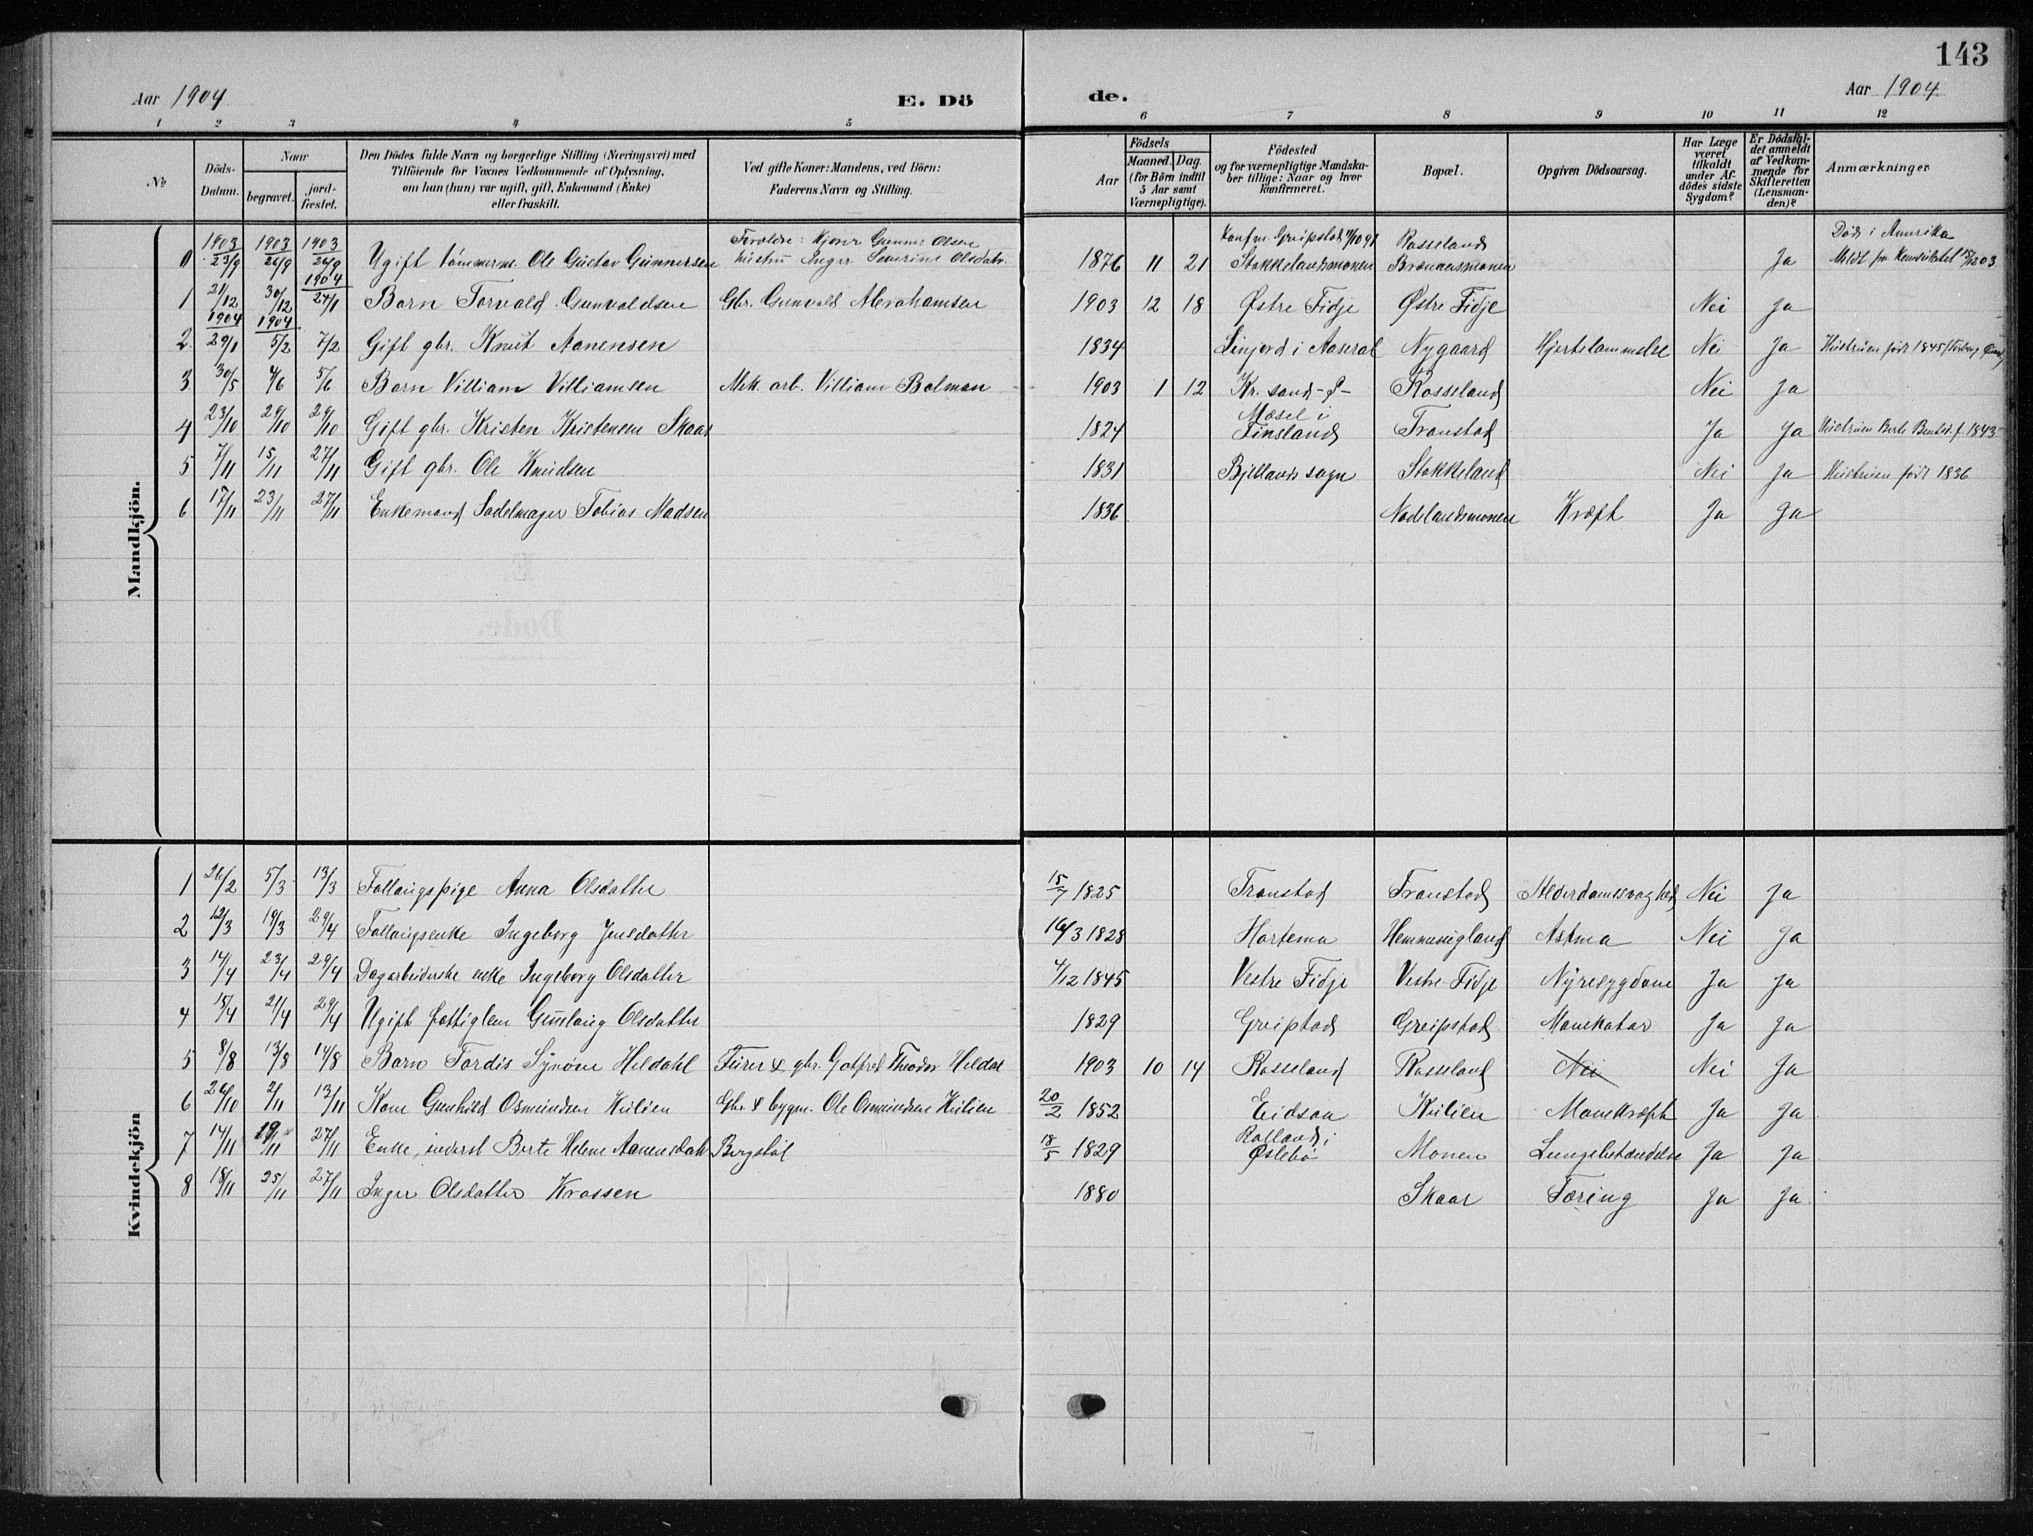 143
Aar 1904
E. Dö
de.
Aar 1904
1 2 3 4 5 6 7 8 9 10 11 12
№
Döds-Datum.
Naar
begravet.
jord-fæstet.
Den Dödes fulde Navn og borgerlige Stilling (Næringsvei) med
Tilföiende for Voxnes Vedkommende af Oplysning,
om han (hun) var ugift, gift, Enkemand (Enke)
eller fraskilt.
Ved gifte Koner: Mandens, ved Börn:
Faderens Navn og Stilling.
Födsels
Aar
Maaned. Dag.
(for Börn indtil
5 Aar samt
Værnepligtige).
Födested
og for værnepligtige Mandska-
ber tillige: Naar og hvor
konfirmeret.
Bopæl.
Opgiven Dödsaarsag.
Har Læge
været
tilkaldt
under Af-
dödes sidste
Sygdom?
Er Dödsfal-
det anmeldt
af Vedkom-
mende for
Skifteretten
(Lensman-
den)?
Anmærkninger
Mandkjön.
0 1903 23/9 1903 24/9 1903 24/9 Ugift tömmerm. Ole Gustav Gunnersen Forældre: Gunner Olsen hustru Inger Severine Olsdatr. 1876 11 21 Konf. Greipstad Stokkelandsmonen Rosseland Ja Död i Amerika
1 21/12 30/12 1904 24/1 Barn Torvald Gunvaldsen Gbr. Gunvald Abrahamsen 1903 12 18 Östre Fidje Östre Fidje Nei Ja
2 1904 29/1 1904 5/2 7/2 Gift gbr. Knut Aanensen 1834 Linjord i Aaseral Nygaard Hjertelammelse Nei Ja Hustruen födt 1845
3 30/5 4/6 5/6 Barn Villiam Villiamsen Mek. arb. Villiam Bolman 1903 1 12 Kr. sand Rosseland Nei Ja
4 23/10 29/10 29/10 Gift gbr. Kristen Kristensen Skaar 1824 Mæsel i Finsland Tronstad Ja Ja Hustruen Berte Bentsd. f. 1843
5 7/11 15/11 27/11 Gift gbr. Ole Knudsen 1831 Bjellands sogn Stokkeland Nei Ja Hustruen födt 1836
6 17/11 23/11 27/11 Enkemand Sadelmager Tobias Madsen 1836 Nodelandsmonen Kræft Ja Ja
Kvindekjön
1 26/2 5/3 13/3 Fattigpige Anna Olsdatter 15/7 1825 Tronstad Tronstad Alderdomssvaghed Nei Ja
2 12/3 19/3 29/4 Fattigenke Ingeborg Jensdatter 16/3 1828 Hortema Hemmingland Astma Nei Ja
3 14/4 23/4 29/4 Dagarbeiderske enke Ingeborg Olsdatter 4/12 1845 Vestre Fidje Vestre Fidje Nyresygdom Ja Ja
4 15/4 21/4 29/4 Ugift fattiglem Gunlaug Olsdatter 1829 Greipstad Greipstad Mavekatar Ja Ja
5 8/8 13/8 14/8 Barn Tordis Synöve Heldahl Furer & gbr. Gotfred Theodor Heldal 1903 10 14 Rosseland Rosseland Nei Nei Ja
6 26/10 2/11 13/11 Kone Gunhild Osmundsen Kulien Gbr & bygm. Ole Osmundsen Kulien 20/2 1852 Eidsaa Kulien Mavekræft Ja Ja
7 14/11 19/11 27/11 Enke, inderst Berte Helene Aanensdatr Bergstöl 18/5 1829 Öslebö Monen Lungebetændelse Ja Ja
8 18/11 25/11 27/11 Inger Olsdatter Krossen 1880 Skaar Tæring Ja Ja